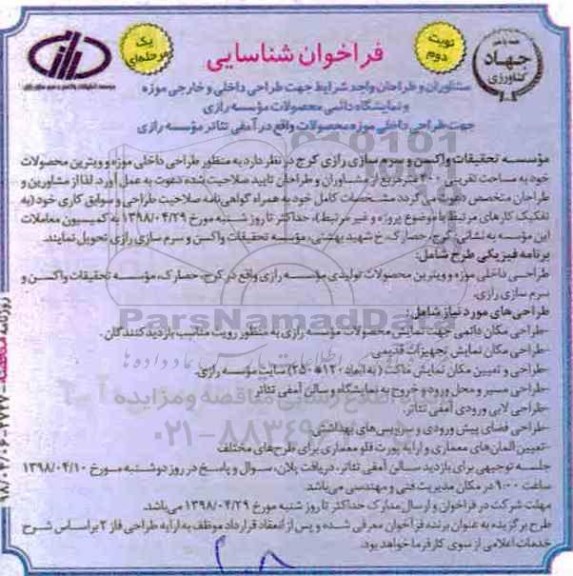 نوبت دوم
جهاد کشاورزی
فراخوان شناسایی
یک مرحله‌ای
مشاوران و طراحان واجد شرایط جهت طراحی داخلی و خارجی موزه
و نمایشگاه دائمی محصولات مؤسسه رازی
جهت طراحی داخلی موزه محصولات واقع در آمفی تئاتر مؤسسه رازی
مؤسسه تحقیقات واکسن و سرم سازی رازی کرج در نظر دارد به منظور طراحی داخلی موزه و ویترین محصولات
خود به مساحت تقریبی مترمربع از مشاوران و طراحان تایید صلاحیت شده دعوت به عمل آورد. لذا از مشاورین و
طراحان متخصص دعوت می گردد مشخصات کامل خود به همراه گواهی‌نامه صلاحیت طراحی و سوابق کاری خود (به
تفکیک کارهای مرتبط با موضوع پروژه و غیر مرتبط)، حداکثر تا روز شنبه مورخ ۱۳۹۸/۰۴/۲۹ به کمیسیون معاملات
این مؤسسه به نشانی: کرج، حصارک، خ شهید بهشتی، مؤسسه تحقیقات واکسن و سرم سازی رازی، تحویل نمایند.
برنامه فیزیکی طرح شامل:
طراحی داخلی موزه و ویترین محصولات تولیدی مؤسسه رازی واقع در کرج، حصارک، مؤسسه تحقیقات واکسن و
سرم سازی رازی.
طراحی‌های مورد نیاز شامل:
-طراحی مکان دائمی جهت نمایش محصولات مؤسسه رازی به منظور رویت مناسب بازدیدکنندگان.
-طراحی مکان نمایش تجهیزات قدیمی
-طراحی و تعیین مکان نمایش ماکت (به ابعاد ۱۲۰*۲۵۰) سایت مؤسسه رازی
-طراحی مسیر و محل ورود و خروج به نمایشگاه و سالن آمفی تئاتر
-طراحی لابی ورودی آمفی تئاتر.
-طراحی فضای پیش ورودی و سرویس‌های بهداشتی
-تعیین المان‌های معماری و ارایه پورت فلو معماری برای طرح‌های مختلف
جلسه توجیهی برای بازدید سالن آمفی تئاتر، دریافت پلان، سوال و پاسخ در روز دوشنبه مورخ ۱۳۹۸/۰۴/۱۰
ساعت ۹:۰۰ در مکان مدیریت فنی و مهندسی می‌باشد.
مهلت شرکت در فراخوان و ارسال مدارک حداکثر تا روز شنبه مورخ ۱۳۹۸/۰۴/۲۹ می‌باشد.
طرح برگزیده به عنوان برنده فراخوان معرفی شده و پس از انعقاد قرارداد موظف به ارایه طراحی فاز ۲ براساس شرح
خدمات اعلامی از سوی کارفرما خواهد بود.
ParsNamadData
۰۲۱-۸۸۳۴۹۶